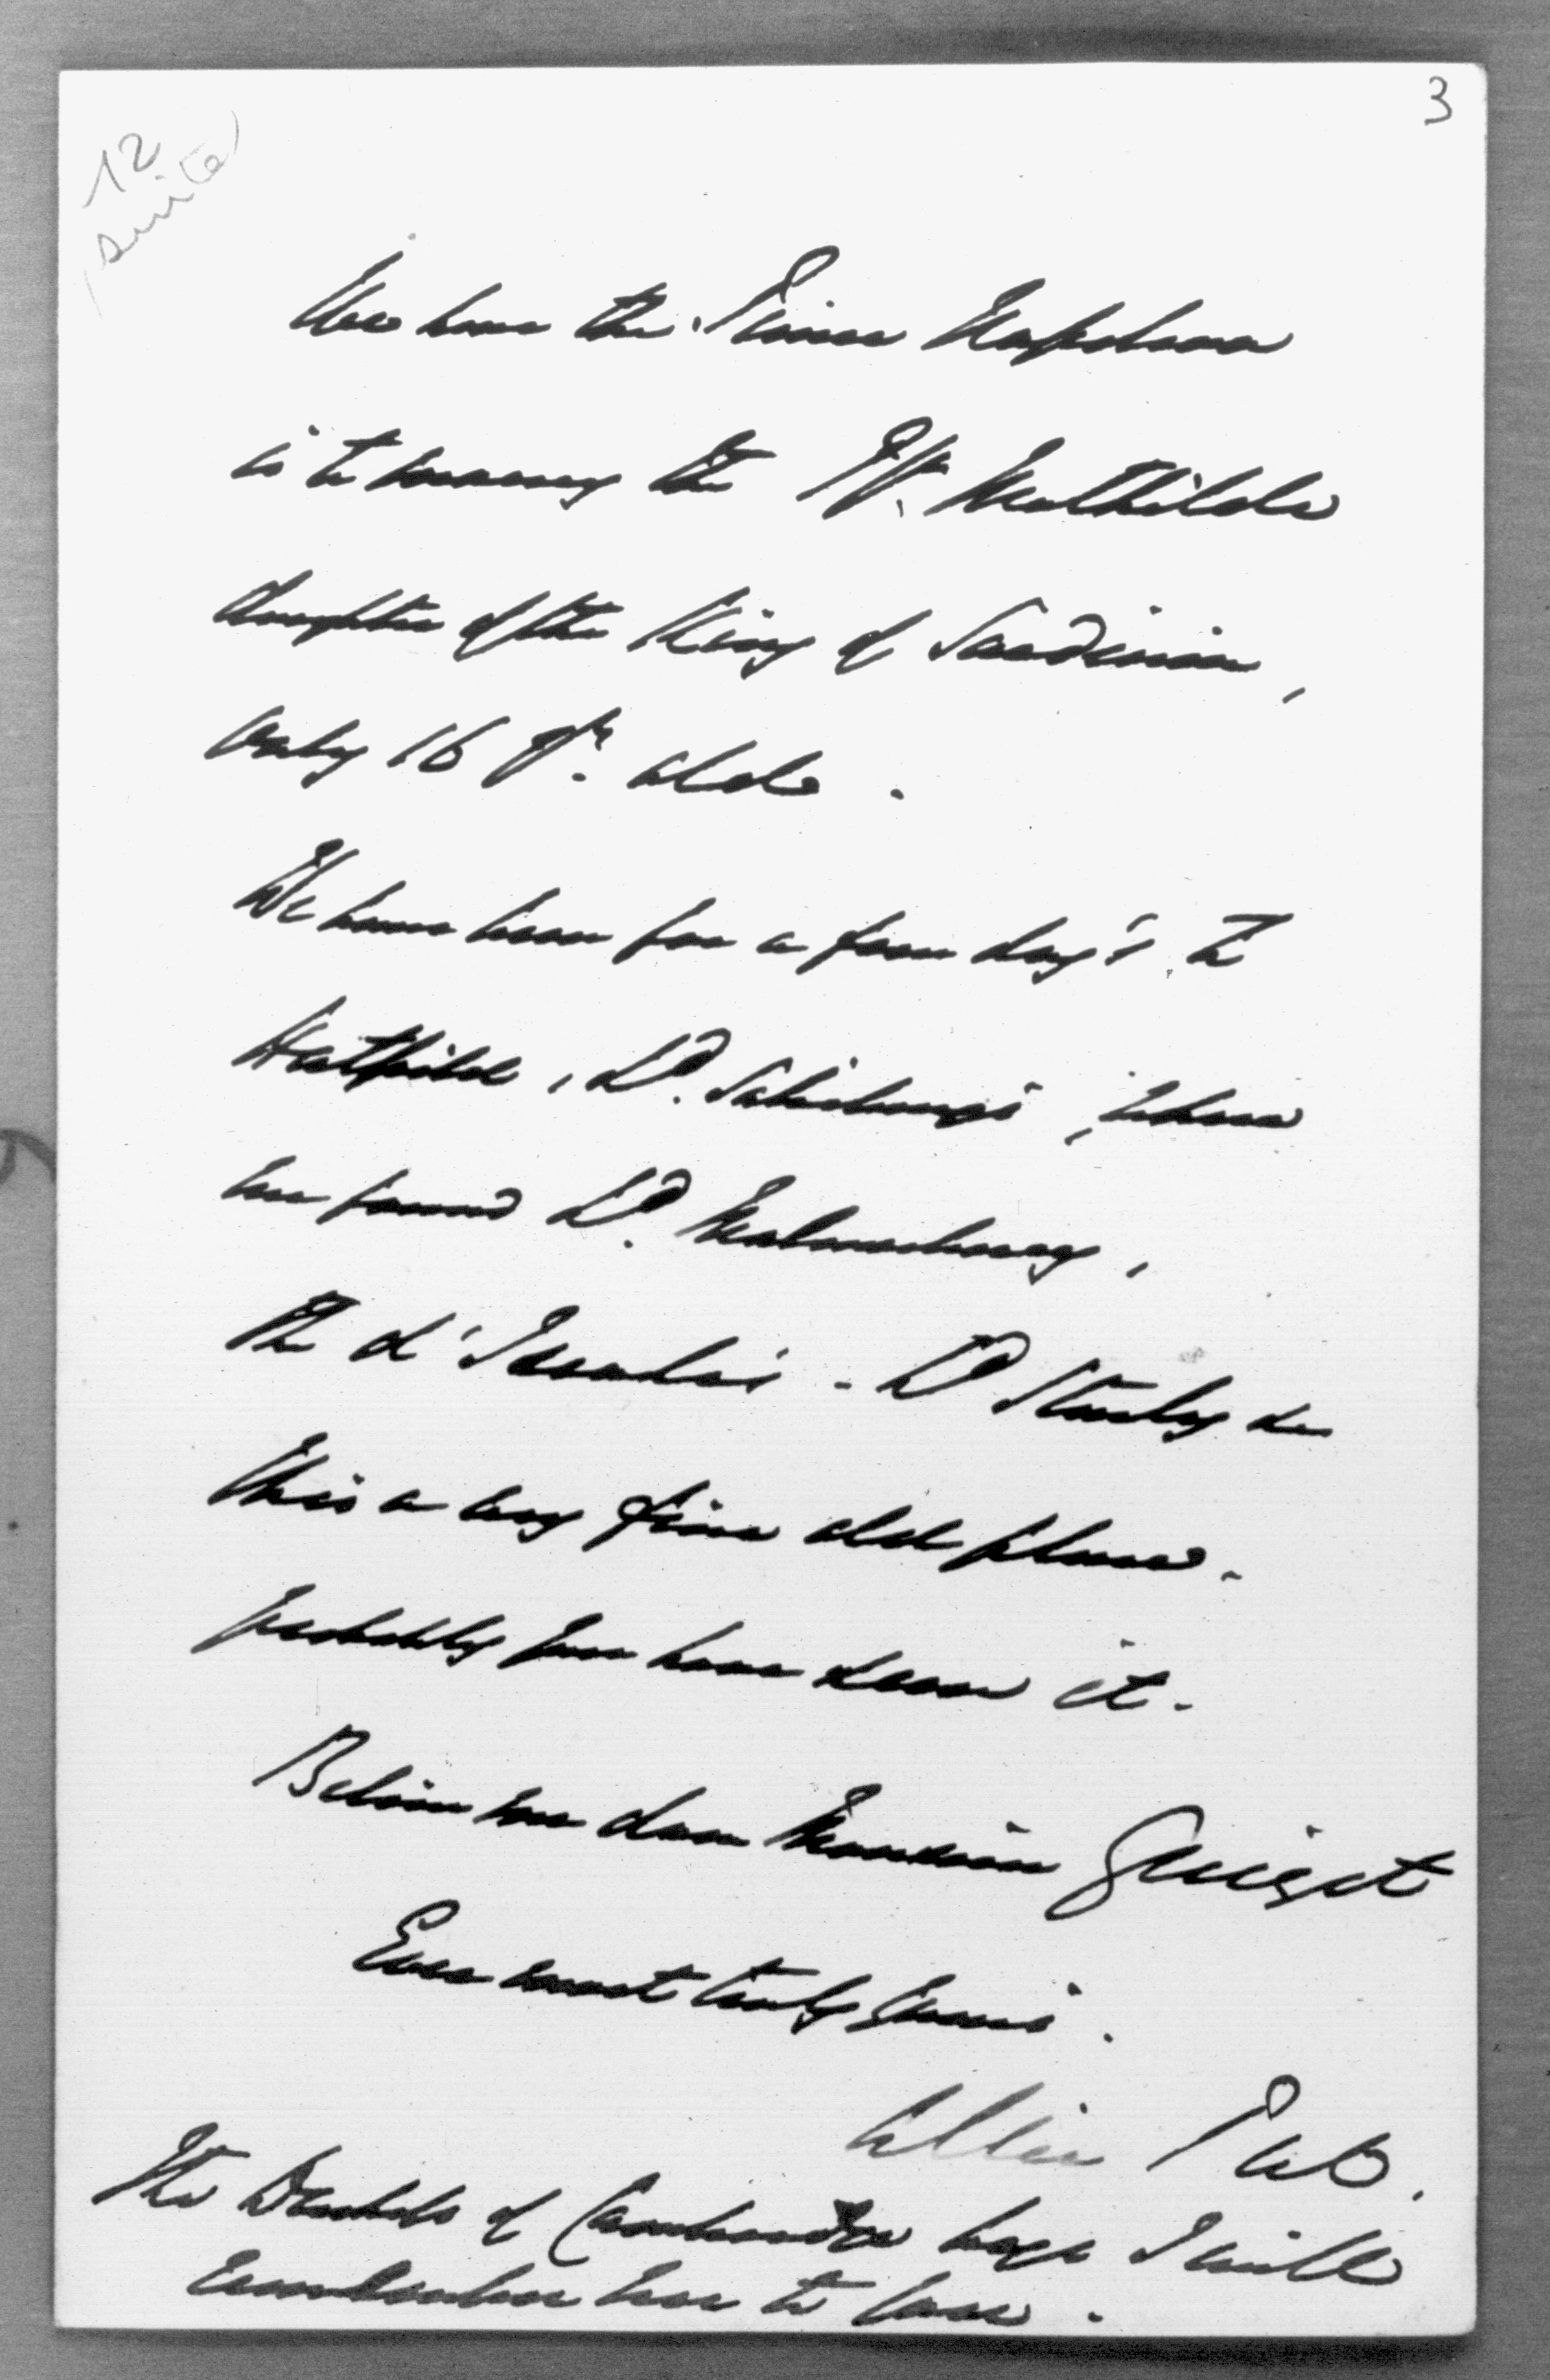 3
12
(suite)
We hear the Prince Napoleon
is to marry the Pss. Mathilde
daughter of the King of Sardinia,
only 16 yrs. old.
We have been for a few day's to
Hatfield, Ld. Salisbury's, where
we found Ld. Malmesbury,
the d' Israelis - Ld Stanley &c
this a very fine old place.
probably you have seen it.
Believe me dear Monsieur Guizot
Ever most truly yours.
The Duchess of Cambridge begs I will
remember her to you.